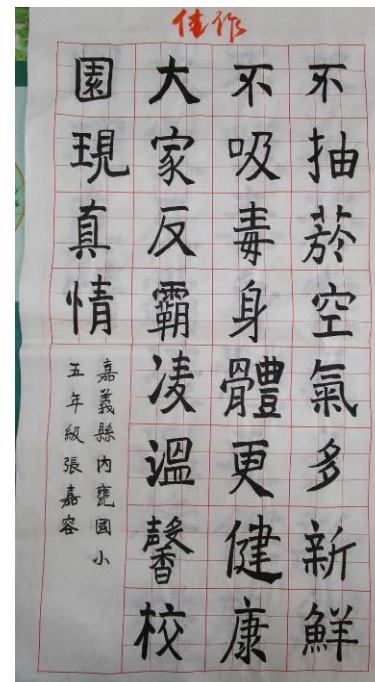 佳作
不抽菸空氣多新鮮
不吸毒身體更健康
大家反霸凌溫馨校
園現真情
嘉義縣內甕國小
五年級張嘉容